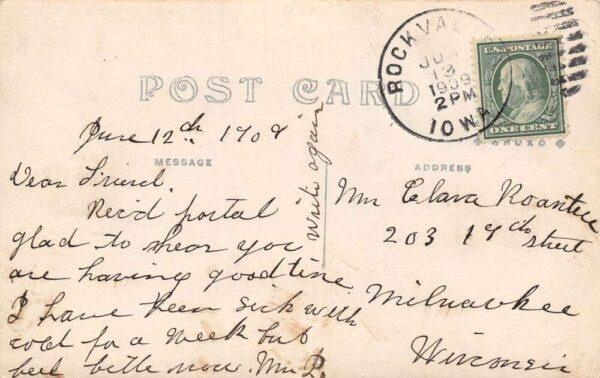 POST CARD
ROCKVAL
JUN
13
1909
2PM
IOWA
U.S. POSTAGE
ONE CENT
CRUXO
June 12th 1909
MESSAGE
Dear Friend.
Rec'd portal
glad to hear you
are having good time
I have been sick with
cold for a week but
feel bette now. Mrs
Write again
ADDRESS
Clara Roantree
203 17th street
Milwaukee
Wisconsin